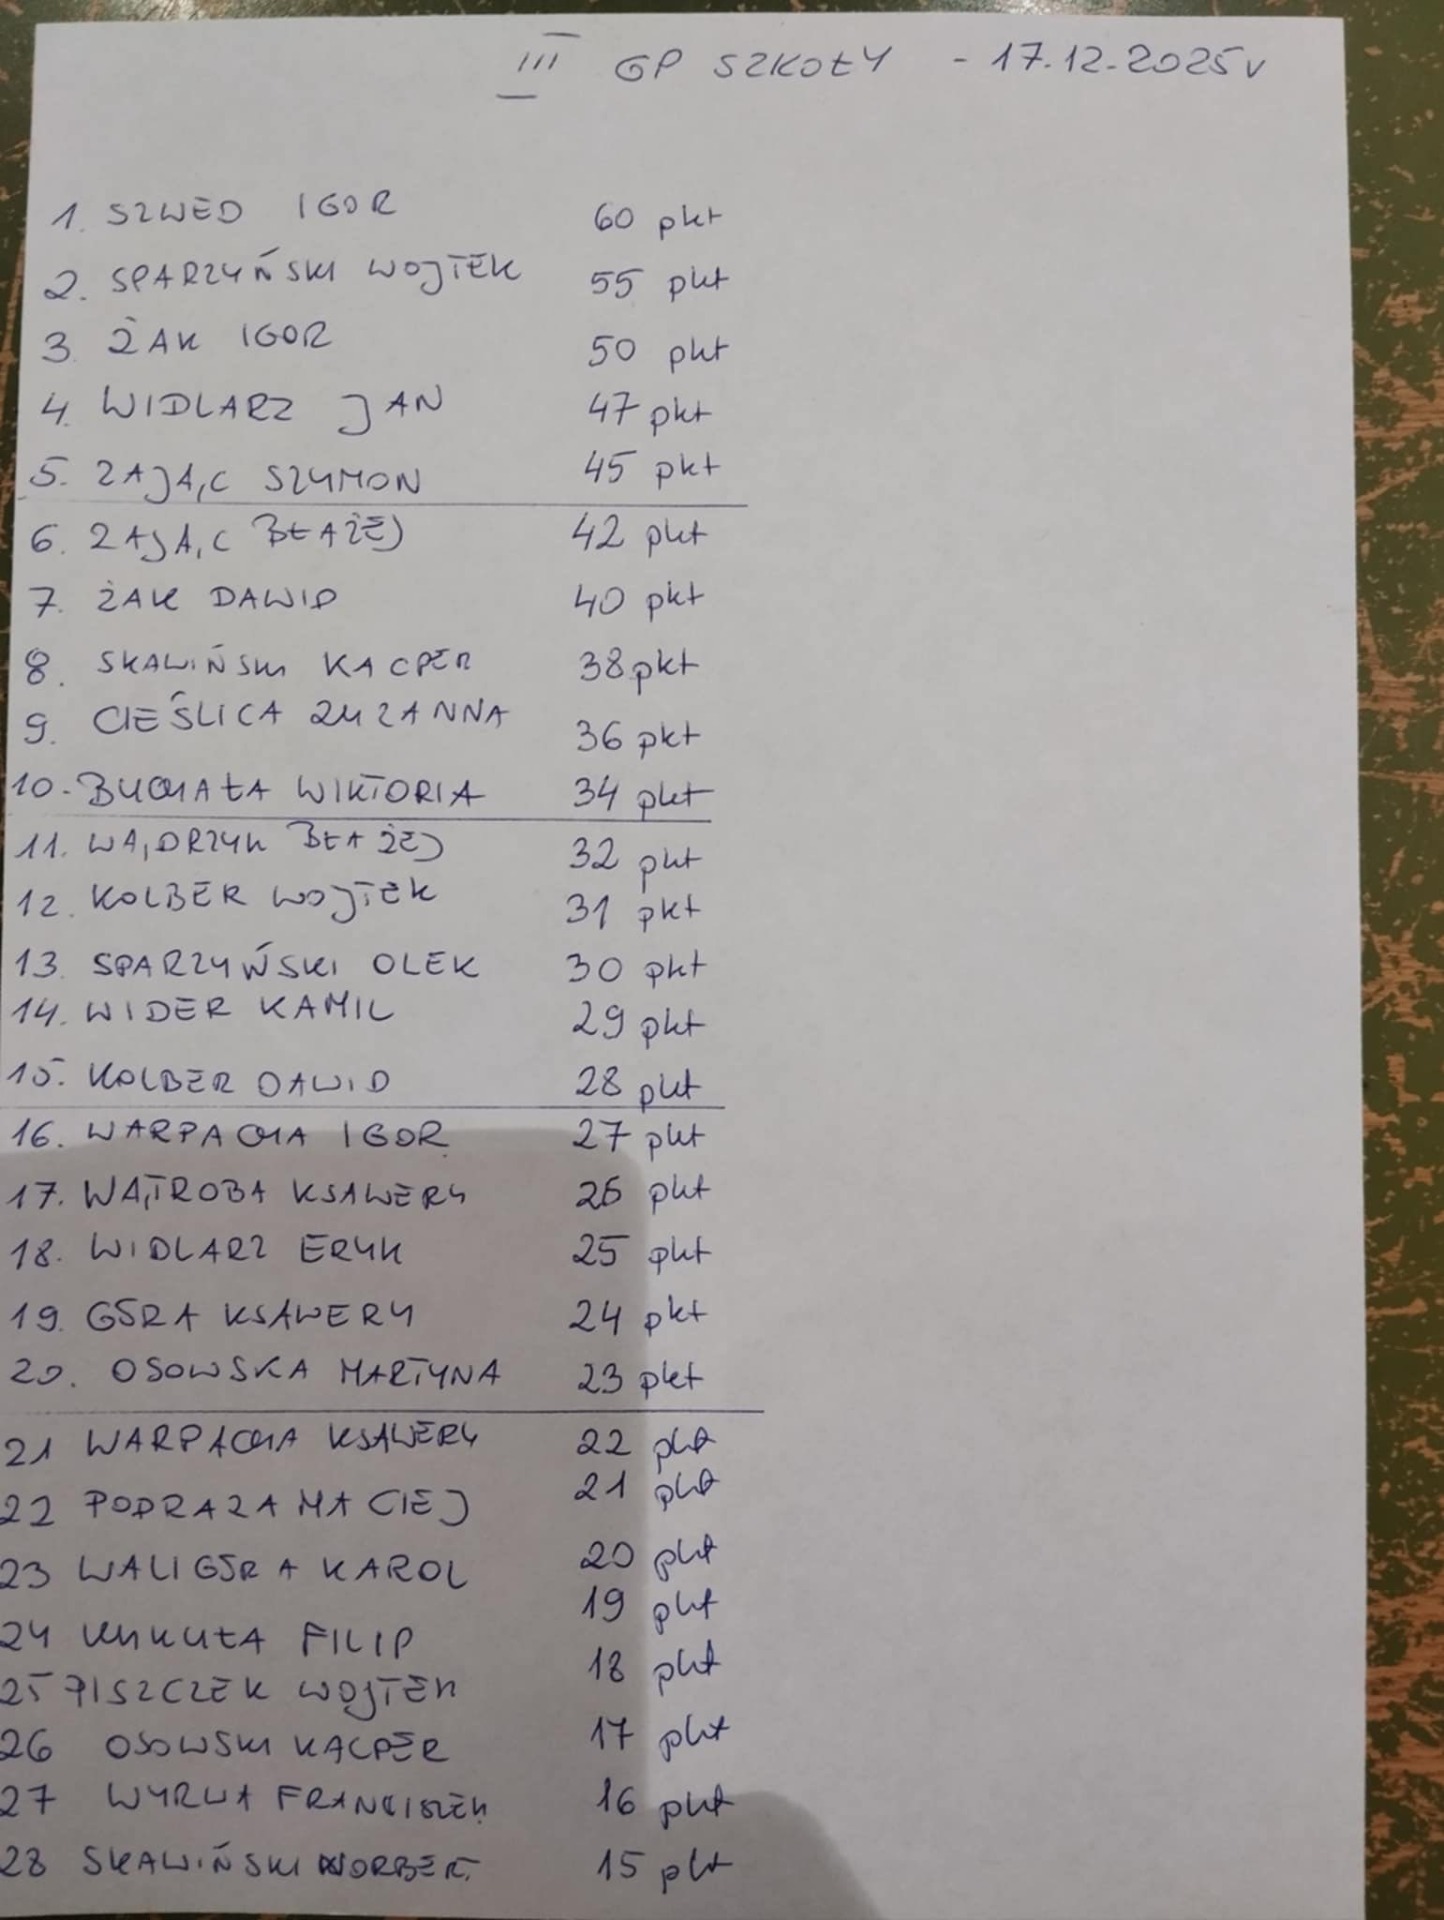 III GP SZKOŁY - 17.12.2025r
1. SZWED IGOR 60 pkt
2. SPARZYŃSKI WOJTEK 55 pkt
3. ŻAK IGOR 50 pkt
4. WIDLARZ JAN 47 pkt
5. ZAJĄC SZYMON 45 pkt
6. ZAJĄC BŁAŻEJ 42 pkt
7. ŻAK DAWID 40 pkt
8. SKAWIŃSKI KACPER 38 pkt
9. CIEŚLICA ZUZANNA 36 pkt
10. BUCHAŁA WIKTORIA 34 pkt
11. WĄDRZYK BŁAŻEJ 32 pkt
12. KOLBER WOJTEK 31 pkt
13. SPARZYŃSKI OLEK 30 pkt
14. WIDER KAMIL 29 pkt
15. KOLBER DAWID 28 pkt
16. WARPACHA IGOR 27 pkt
17. WĄTROBA KSAWERY 26 pkt
18. WIDLARZ ERYK 25 pkt
19. GÓRA KSAWERY 24 pkt
20. OSOWSKA MARTYNA 23 pkt
21 WARPACHA KSAWERY 22 pkt
22 PODRAZA MACIEJ 21 pkt
23 WALIGÓRA KAROL 20 pkt
24 KUKUŁA FILIP 19 pkt
25 PISZCZEK WOJTEK 18 pkt
26 OSOWSKI KACPER 17 pkt
27 WYRWA FRANCISZEK 16 pkt
28 SKAWIŃSKI NORBERT 15 pkt